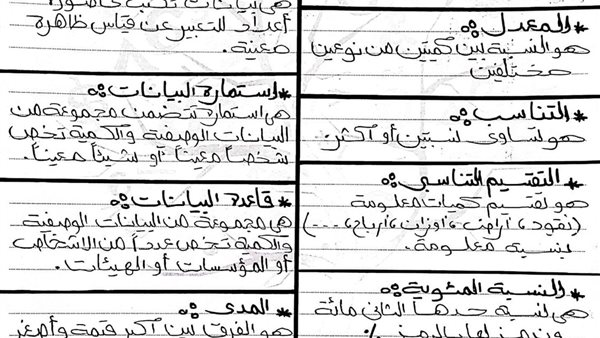 * المعدل :
هو النسبة بين كميتين من نوعين
مختلفين
* التناسب :
هو تساوى نسبتين أو أكثر.
* التقسيم التناسبى :
هو تقسيم كميات معلومة
(نقود، أراضى، أوزان، أرباح، ....)
بنسبة معلومة.
* النسبة المئوية :
هى نسبة حدها الثانى مائة
ونرمز لها بالرمز %
هى بيانات تكتب
أعداد للتعبير عن قياس ظاهرة
معينة.
* استمارة البيانات :
هى استمارة تتضمن مجموعة من
البيانات الوصفية والكمية تخص
شخصاً معيناً أو شيئاً معيناً.
* قاعدة البيانات :
هى مجموعة من البيانات الوصفية
والكمية تخص عدداً من الاشخاص
أو المؤسسات أو الهيئات.
* المدى :
هو الفرق بين أكبر قيمة وأصغر